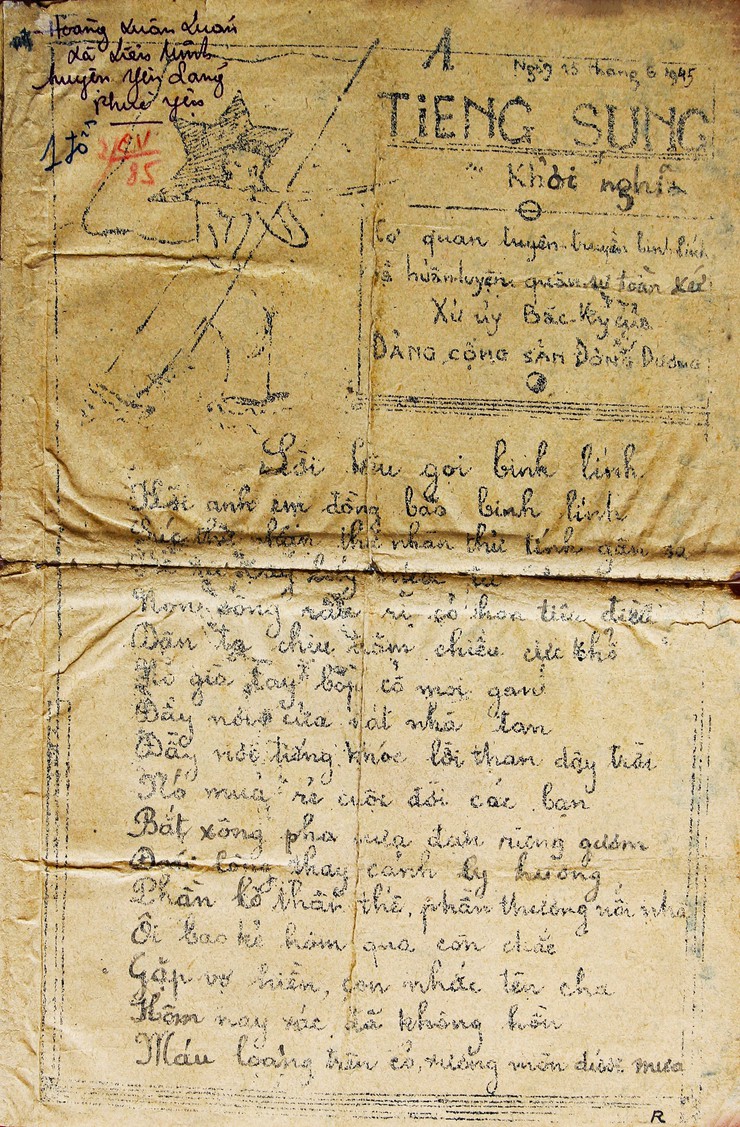 Hoàng Xuân Luân
xã Liên
huyện Yên Lãng
Phúc Yên
1 tờ
21/IV/85
1
Ngày 15 tháng 6 1945
TIẾNG SÚNG
Khởi nghĩa
Cơ quan tuyên truyền binh lính
và huấn luyện quân sự toàn xứ
Xứ ủy Bắc Kỳ của
ĐẢNG CỘNG SẢN ĐÔNG DƯƠNG
Lời kêu gọi binh lính
Hỡi anh em đồng bào binh lính
thử tính gần xa
Non sông rầu rĩ cỏ hoa tiêu điều
Dân ta chịu trăm chiều cực khổ
Nó giơ tay bóp cổ mọi gan
Đầy nơi cửa nát nhà tan
Đầy nơi tiếng khóc lời than dậy trời
Nó mua rẻ cuộc đời các bạn
Bắt xông pha mưa đạn rừng gươm
Đuối lòng thay cảnh ly hương
Phần lo thân thế, phần thương nỗi nhà
Ôi bao kẻ hôm qua còn chắc
Gặp vợ hiền, con nhắc tên cha
Hôm nay xác đã không hồn
Máu loang trên cỏ, xương mòn dưới mưa
R